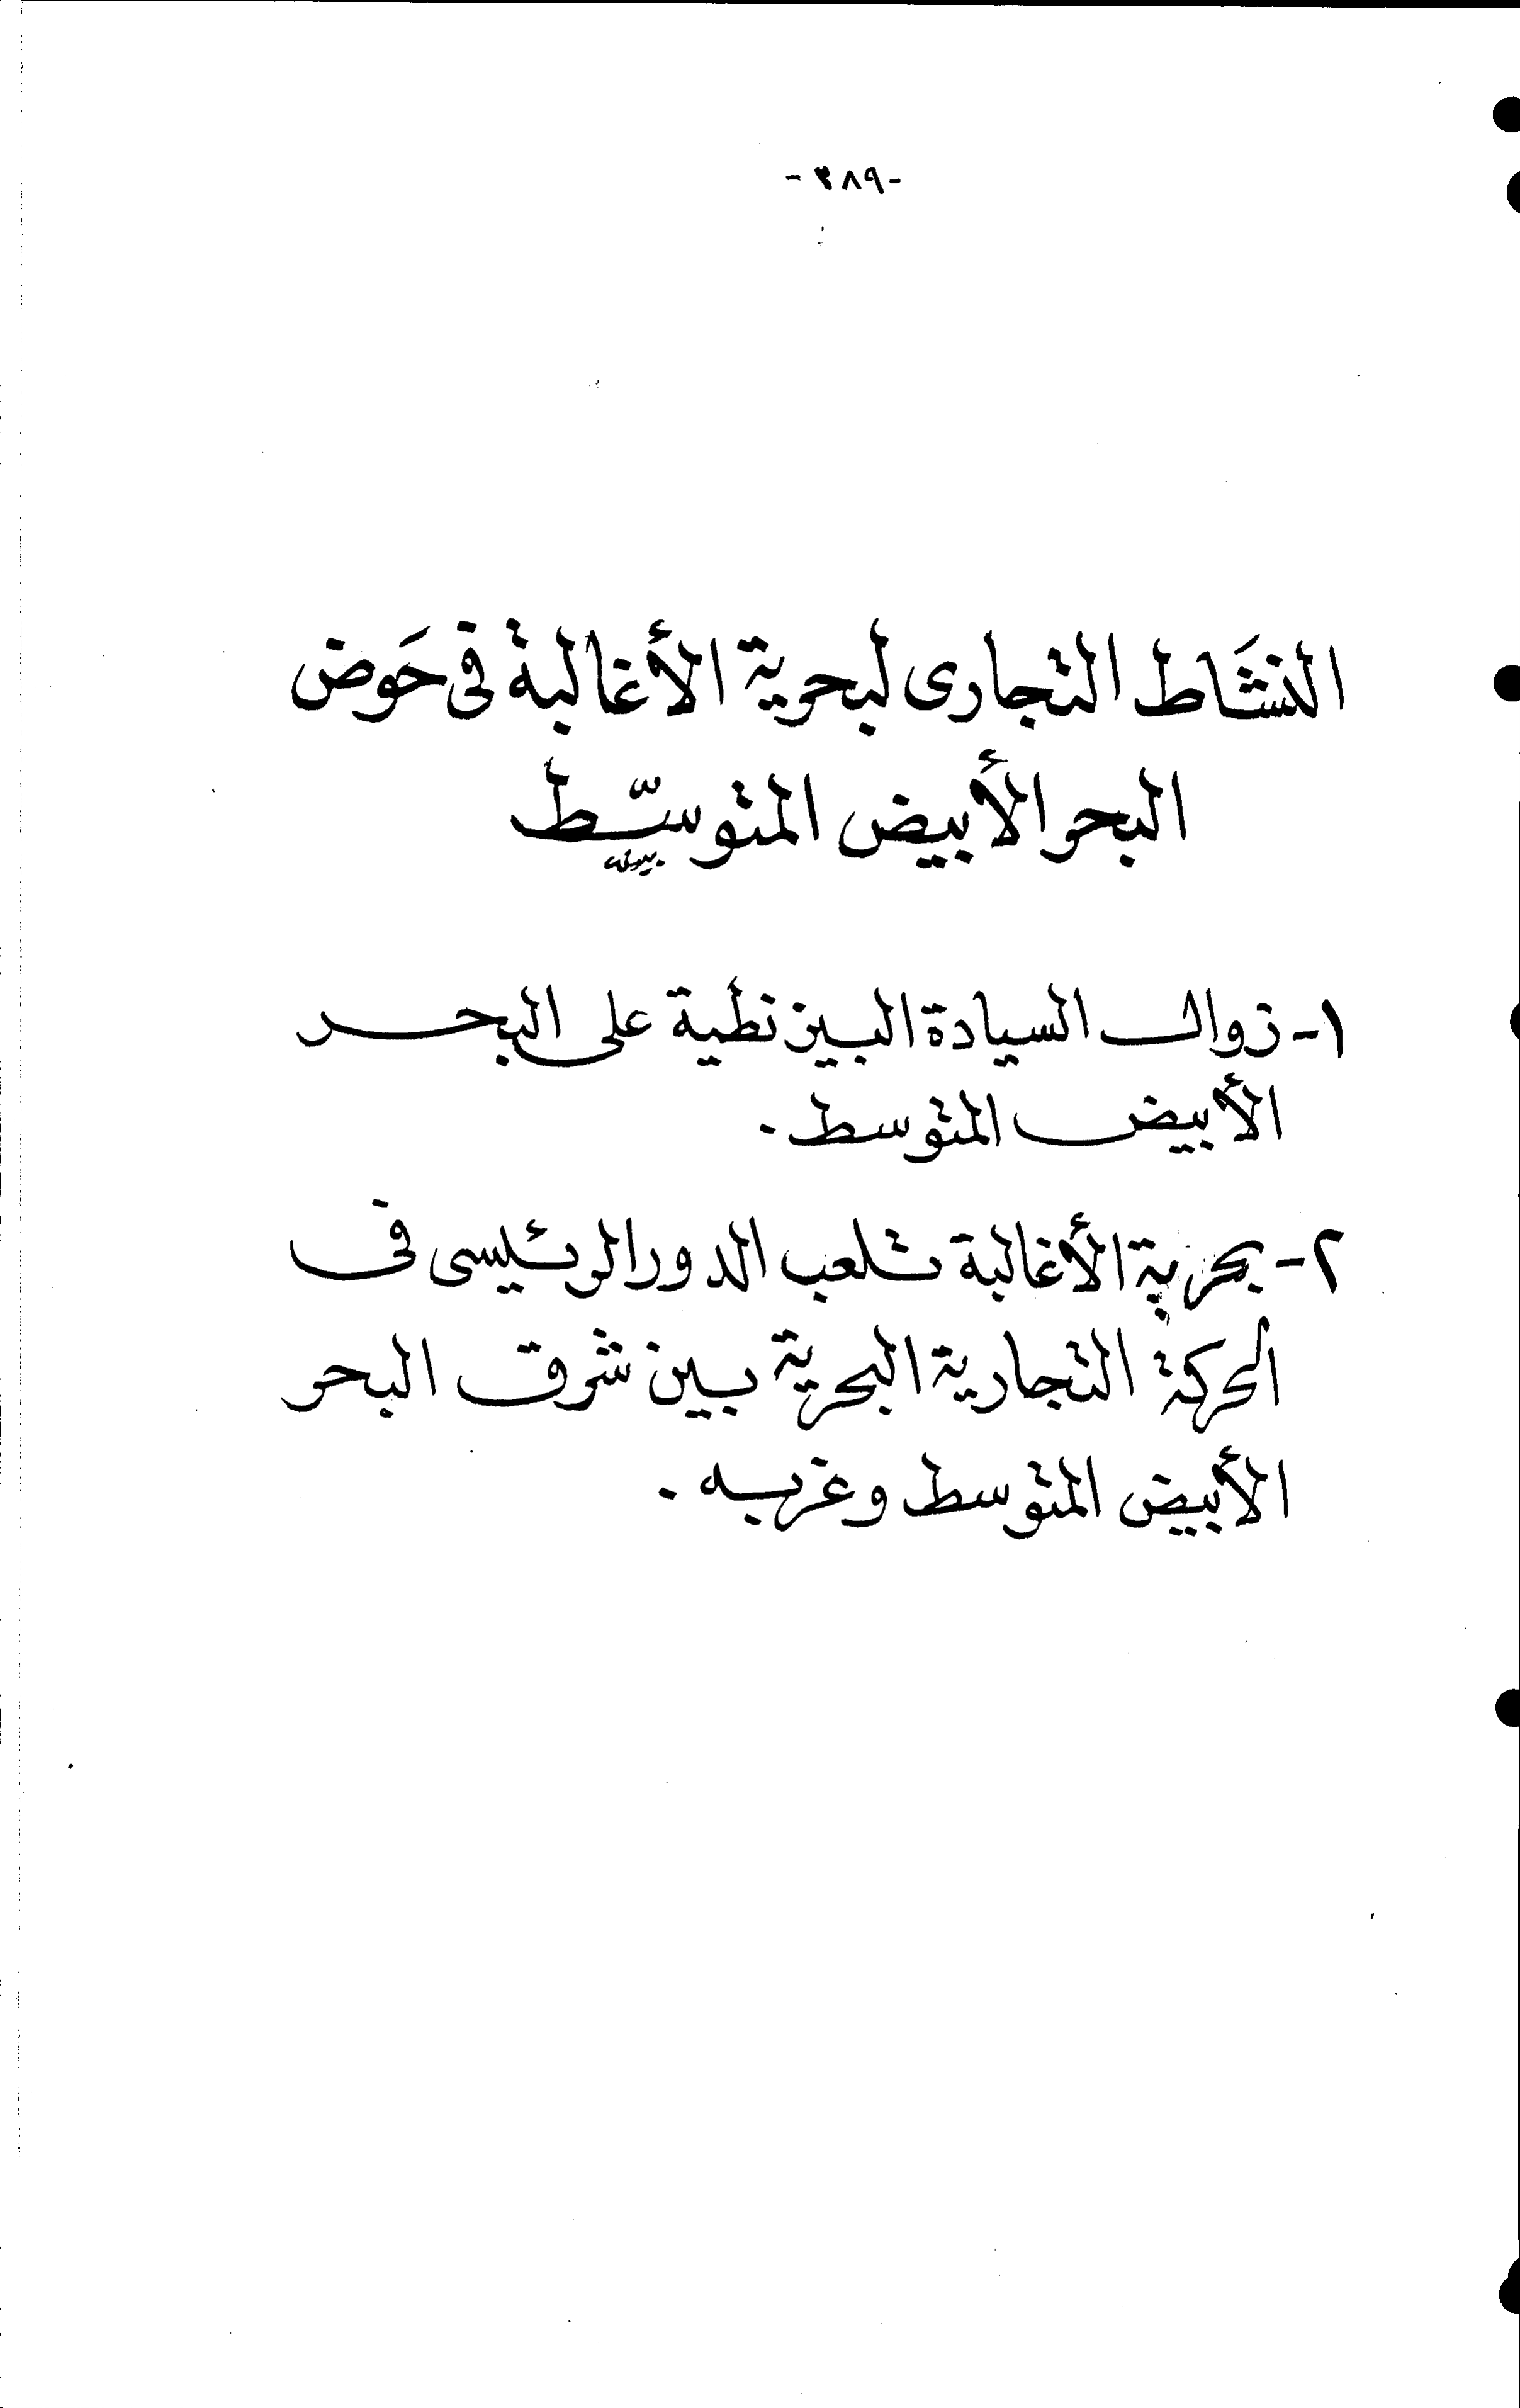 -٣٨٩-
النشَاط التجارى لبحرية الأغالبة فى حَوض
البحر الأبيض المتوسّط
١- زوال السيادة البيزنطية على البحر
الأبيض المتوسط.
٢- بحرية الأغالبة تلعب الدور الرئيسى فى
الحركة التجارية البحرية بين شرق البحر
الأبيض المتوسط وغربه.